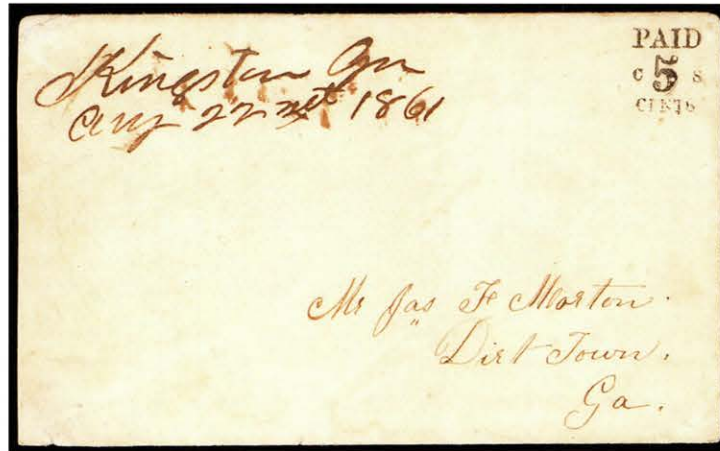 Kingston Ga
Aug 22nd 1861
PAID
C 5 S
CENTS
Mr Jas F Morton.
Dirt Town.
Ga.